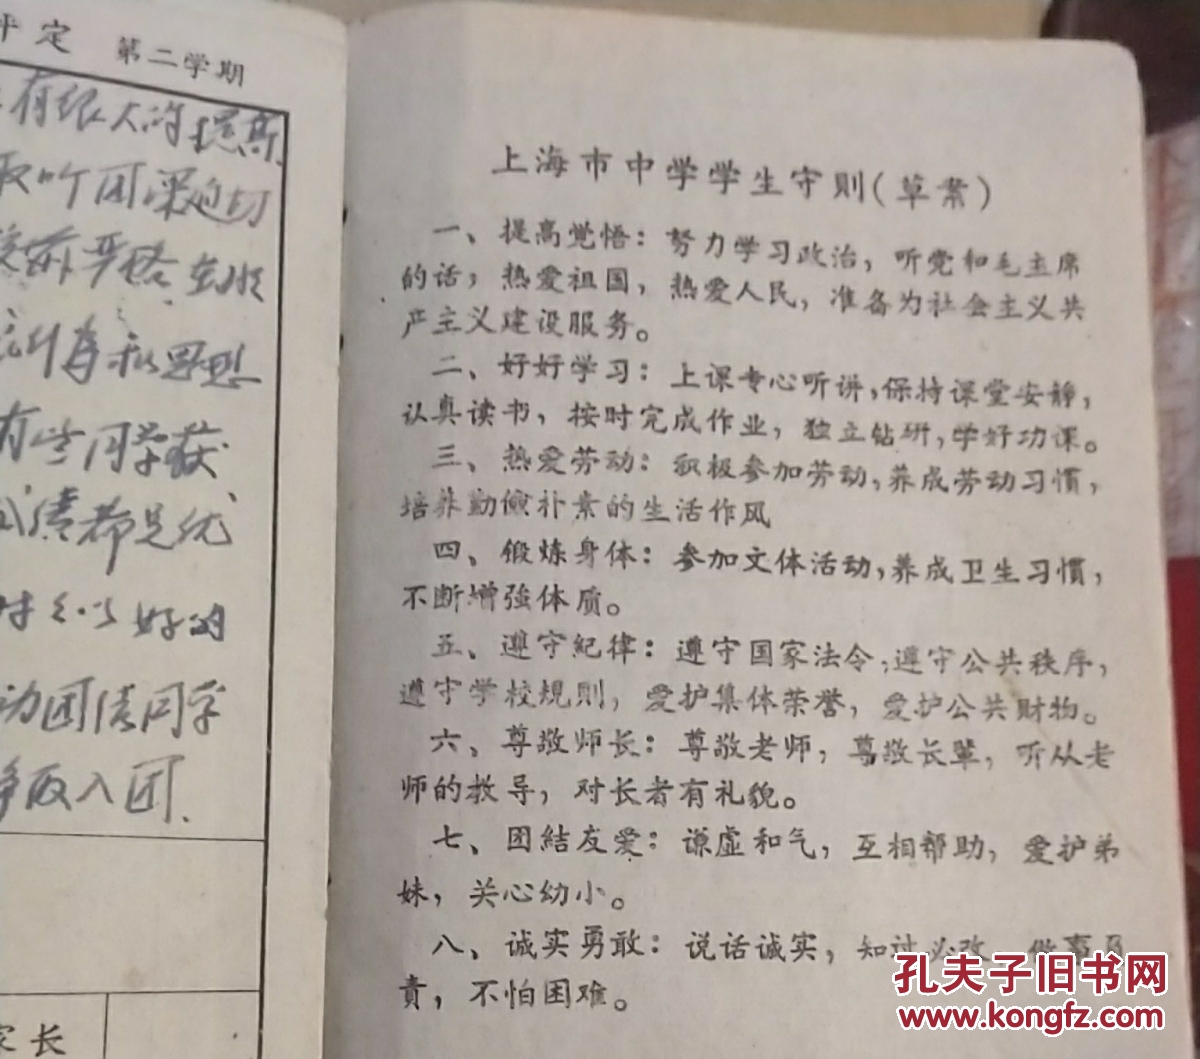 评定 第二学期
有很大的提高
取听团课迫切
严格
行为和思想
有些同学获
成绩都是优
好的
动团结同学
争取入团.
家长
上海市中学学生守则(草案)
一、提高觉悟:努力学习政治,听党和毛主席
的话,热爱祖国,热爱人民,准备为社会主义共
产主义建设服务。
二、好好学习:上课专心听讲,保持课堂安静,
认真读书,按时完成作业,独立钻研,学好功课。
三、热爱劳动:积极参加劳动,养成劳动习惯,
培养勤俭朴素的生活作风
四、锻炼身体:参加文体活动,养成卫生习惯,
不断增强体质。
五、遵守紀律:遵守国家法令,遵守公共秩序,
遵守学校規則,爱护集体荣誉,爱护公共财物。
六、尊敬师长:尊敬老师,尊敬长辈,听从老
师的教导,对长者有礼貌。
七、团結友爱:谦虚和气,互相帮助,爱护弟
妹,关心幼小。
八、诚实勇敢:说话诚实,知过必改,做事负
責,不怕困难。
孔夫子旧书网
www.kongfz.com